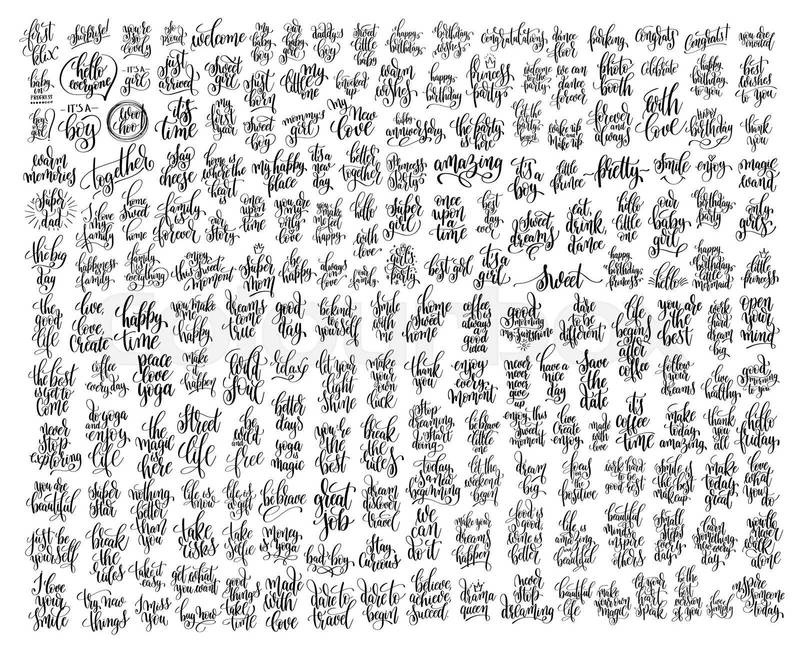 first kix
surprise!
you're so lovely
so proud
welcome
my baby boy
our baby boy
daddy's
sweet little baby
happy birthday
birthday wishes
congratulations
dance floor
parking
congrats
congrats!
you are invited
baby in progress
hello everyone
it's a girl
just arrived
sweet girl
just born
my little one
knocked
warm wishes
happy birthday
princess party
welcome to the party
we can dance forever
photo booth
celebrate
happy birthday to you
best wishes to you
hey girl!
it's a boy
woo hoo
it's time
my first year
sweet boy
mommy's girl
my new love
happy anniversary
the party is here
let the party begin
wake up make up
forever and always
with love
happy birthday
thank you
warm memories
together
stay cheese
home is where the heart is
my happy place
it's a new day
better together
princess party
amazing
it's a boy
little prince
pretty
smile
enjoy
magic wand
super dad
I love my family
home sweet home
family is forever
once upon a time
our story
you are my only love
you make me feel happy
hello
with love
super girl
once upon a time
best day ever
sweet dreams
eat, drink, dance
hello little one
our baby girl
birthday party
only girls
the big day
happiness family
family everything
enjoy this sweet moment
super mom
be happy
always in love
our family
girl's party
best girl
it's a girl
sweet
happy birthday princess
hello
happy birthday mermaid
little princess
the good life
live, love, create
happy time
you make me happy
dreams come true
good day
be kind to yourself
smile with me
home sweet home
coffee is always a good idea
good morning my sunshine
dare to be different
life begins after coffee
you are the best
work hard dream big
open your mind
the best is yet to come
coffee everyday
peace love yoga
make it happen
wild soul
relax
let your light shine
make your own luck
thank you
enjoy every moment
never never never give up
have a nice day
save the date
follow your dreams
live healthy
good morning to you
never stop exploring
do yoga and enjoy life
the magic is here
street life
be wild and free
better days
yoga is magic
you're the best
break the rules
stop dreaming start doing
be brave little one
enjoy this sweet moment
live create enjoy
made with love
it's coffee time
make today amazing
thank you all
hello friday
you are beautiful
super star
nothing better than you
life is now
life is a gift
be brave
great job
dream discover travel
today is a new beginning
let the weekend begin
dream big
focus on the positive
work hard to be best
smile is the best makeup
make today great
love what you do
just be yourself
break the rules
take risks
take selfie
money is yoga
bad boy
stay curious
we can do it
make your dreams happen
good is good wine is better
life is amazing and beautiful
beautiful minds inspire others
small steps every day
learn something new every day
you'll never walk alone
I love your smile
try new things
take it easy
I miss you
get what you want
buy now
good things take time
made with love
dare to travel
dare to begin
believe achieve succeed
drama queen
never stop dreaming
beautiful life
make your own magic
let your heart speak
be the best version of you
live simply
inspire someone today